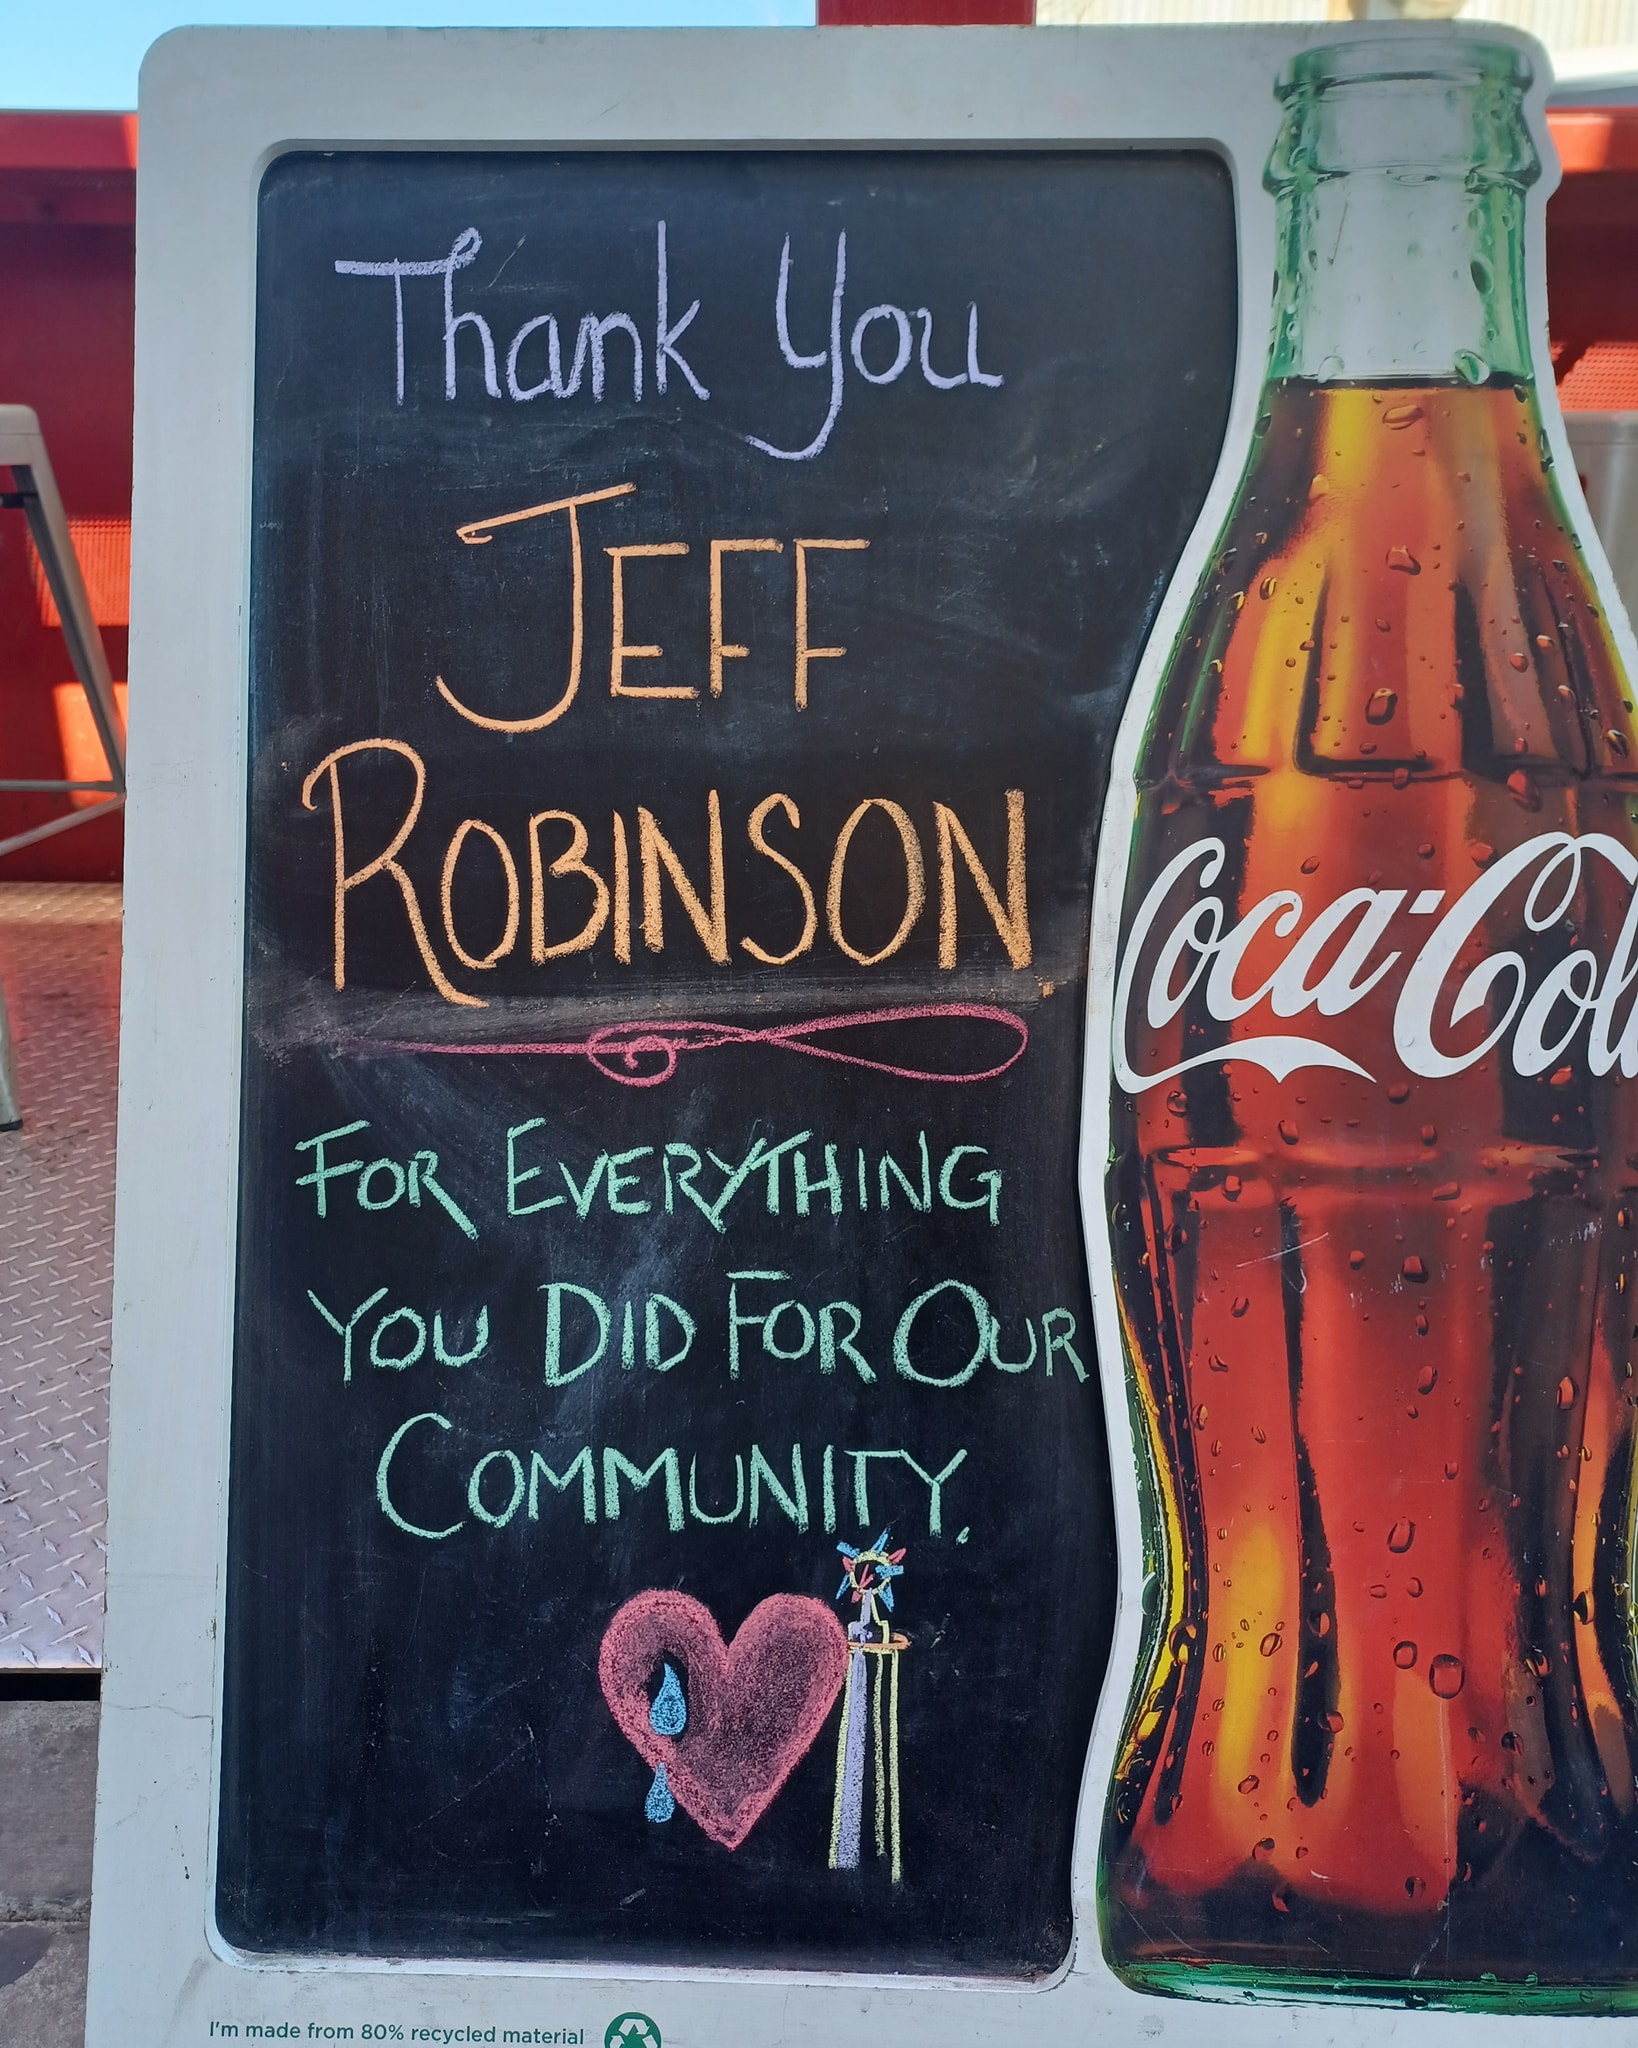 Thank You
JEFF
ROBINSON
FOR EVERYTHING
YOU DID FOR OUR
COMMUNITY.
Coca-Col
I'm made from 80% recycled material